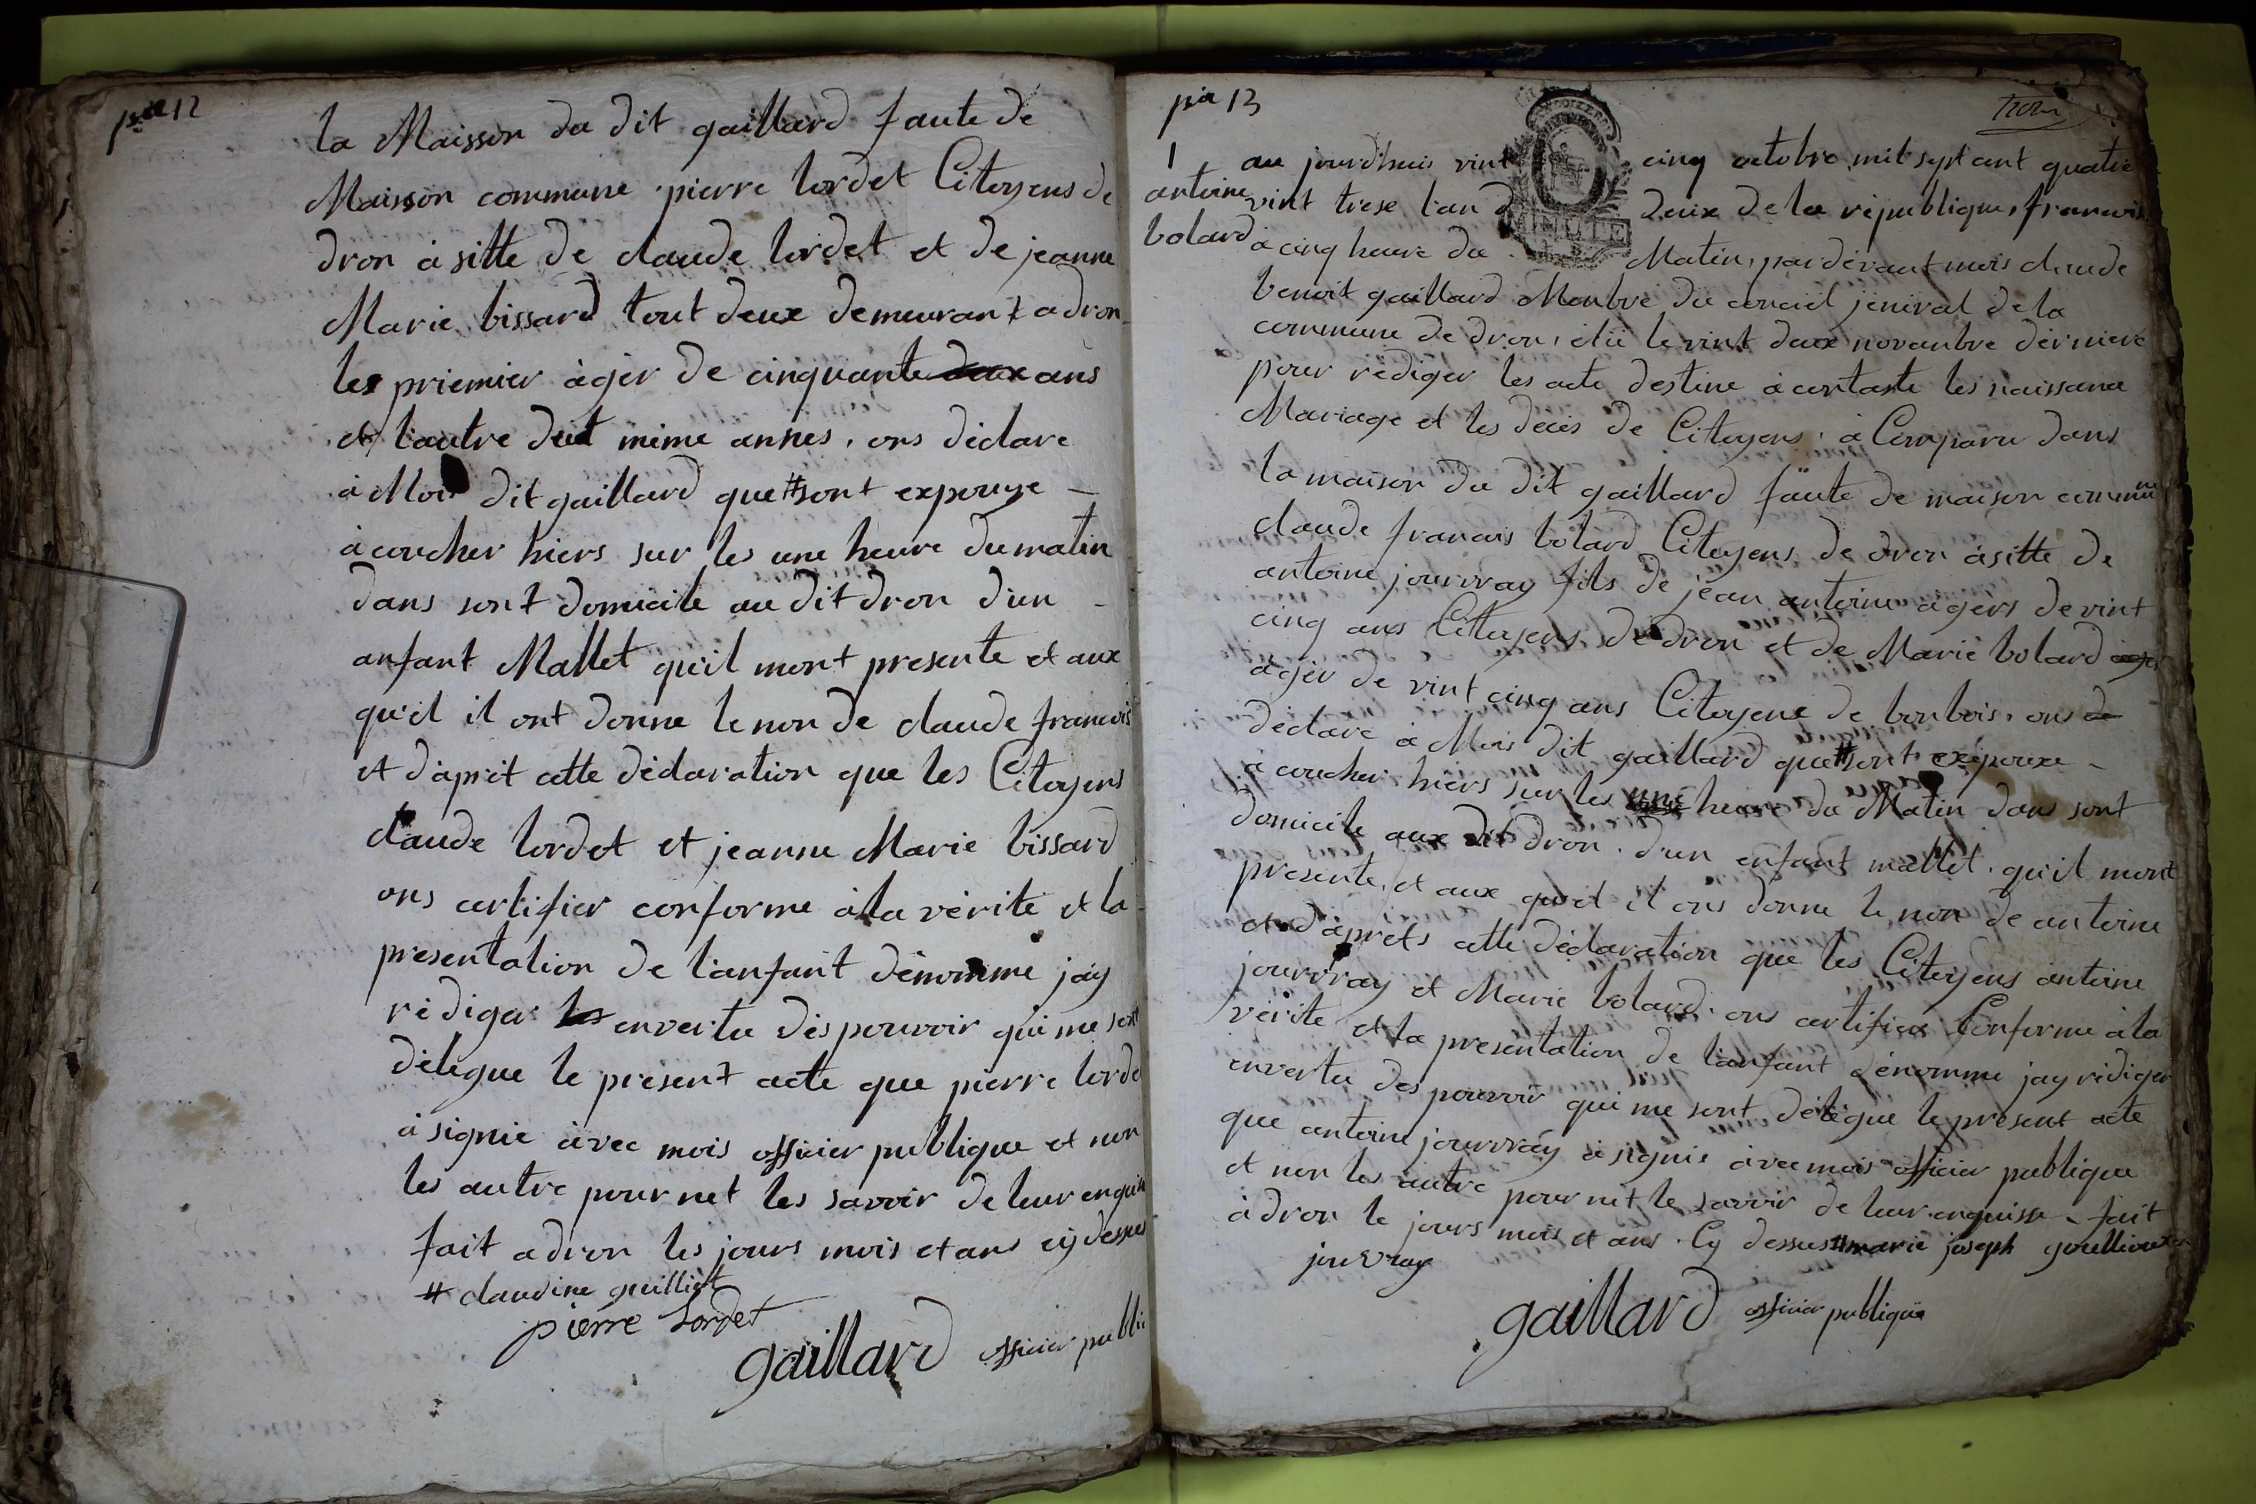 pa 12
la Maisson du dit gaillard faute de
Maisson commune pierre lordet Citoyens de
dron à sitte de claude lordet et de jeanne
Marie bissard tout deux demeurant a dron
les priemier àger de cinquante deux ans
et l'autre deut mème annes, ons dèclare
à Mois dit gaillard que # sont expouze
à coucher hiers sur les une heure du matin
dans sont domicile au dit dron d'un
anfant Mallet qu'il mont presente et aux
qu'el il ont donne le non de claude francois
et d'aprèt cette dèclaration que les Citoyens
claude lordet et jeanne Marie bissard
ons certifier conforme à la vèrite et la
presentation de l'anfant dènomme jay
rèdiger les envertu des pouvoir qui me sont
dèlègue le present acte que pierre lorde
à signie àvec mois officier publique et non
les autre pour net les savoir de leur enquise
fait a dron les jours mois et ans cÿ dessus
# claudine guilliot
pierre Lordet
gaillard officier public
pa 13
1
antoine
bolard
au jourd'huis vint cinq octobre mit sept cent quatre
vint trese l'an deux de la rèpublique, francois
à cinq heure du Matin, par dèvant mois claude
benoit gaillard Monbre du conciel jèniral de la
commune de dron, èlü le vint deux novanbre dèrniere
pour rèdiger les acte destine à contaste les naissance
Mariage et les dècès de Citoyens, à Comparu dans
la maison du dit gaillard faute de maison commune
claude francois bolard Citoyens de dron à sitte de
antoine jouvray fils de jean antoine àgèrs de vint
cinq ans Citoyens de dron et de Marie bolard
àgèr de vint cinq ans Citoyene de bonbois, ons de
dèclare à Mois dit gaillard que # sont expouxe
à coucher hiers sur les une heure du Matin dans sont
domicile aux dit dron d'un enfant mallet, qu'il mont
presente, et aux qu'el il ons donne le non de antoine
et d'aprèts cette dèclaration que les Citoyens antoine
jouvray et Marie bolard, ons certifier Conforme à la
vèrite et la presentation de l'anfant dènomme jay rèdiger
envertu des pouvoir qui me sont dèlègue le present acte
que antoine jouvray à signie àvec mois officier publique
et non les autre pour nèt le savoir de leur enquisse fait
à dron le jours mois et ans Cy dessus # marie joseph
jouvray
gaillard officier publique